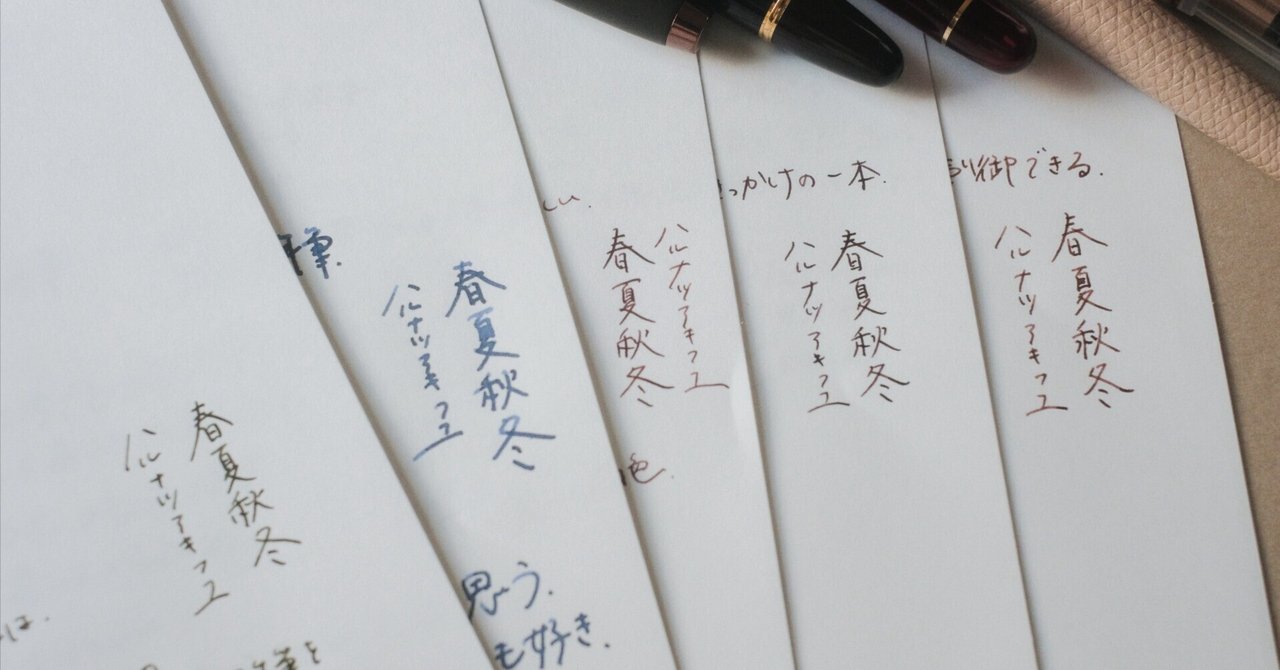 春夏秋冬
ハルナツアキフユ
は.
筆を
筆.
春夏秋冬
ハルナツアキフユ
思う.
も好き.
い.
ハルナツアキフユ
春夏秋冬
色.
っかけの一本.
春夏秋冬
ハルナツアキフユ
御できる.
春夏秋冬
ハルナツアキフユ